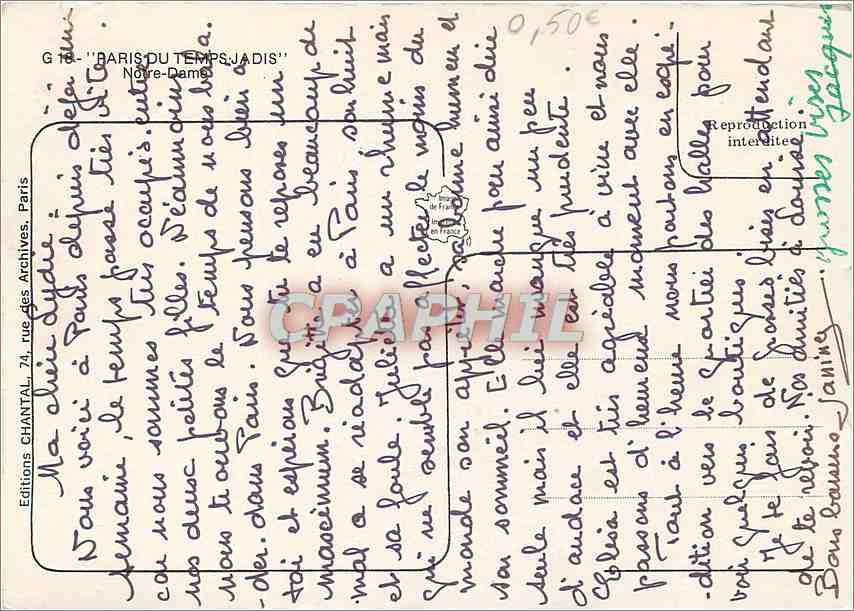 0,50€
G 18 - "PARIS DU TEMPS JADIS"
Notre-Dame
Editions CHANTAL, 74, rue des Archives, Paris
Reproduction
interdite
Imagé
de France
en France
CPAPHIL
Ma chère Lydie :
Nous voici à Paris depuis déjà une
semaine, le temps passe très vite.
car nous sommes très occupés entre
nos deux petites filles. Néanmoins
nous trouvons le temps de nous bala-
-der dans Paris. Nous pensons bien à
toi et espérons que tu te reposes un
maximum. Brigitte a eu beaucoup de
mal a se réadapter à Paris son bruit
et sa foule. Julie a un rhume mais
qui ne semble pas affecter le moins du
monde son appétit, sa bonne humeur et
son sommeil. Elle marche pour ainsi dire
seule mais il lui manque un peu
d'audace et elle est très prudente.
est très agréable à vivre et nous
passons d'heureux moments avec elle.
Tout à l'heure nous partons en expé-
-dition vers le quartier des halles pour
voir quelques boutiques.
Je te fais de grosses bises en attendant
de te revoir. Nos amitiés à
Bons baisers Janine
grosses bises
Jacques